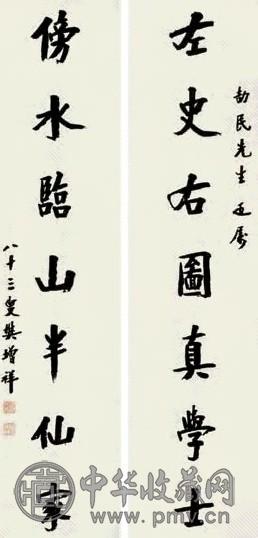 劼民先生正屬
左史右圖真學士
傍水臨山半仙家
八十三叟樊增祥
中华收藏网
www.pmcn.cn